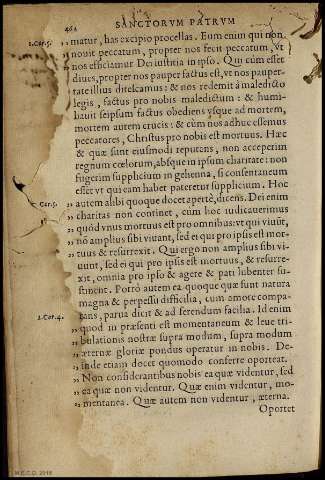 462 SANCTORVM PATRVM
2.Cor.5. „ matur, has excipio procellas. Eum enim qui non
„ nouit peccatum, propter nos fecit peccatum, vt
„ nos efficiamur Dei iustitia in ipso. Qui cùm esset
diues, propter nos pauper factus est, vt nos pauper-
tate illius ditescamus: & nos redemit à maledicto
legis, factus pro nobis maledictum: & humi-
liauit seipsum factus obediens vsque ad mortem,
mortem autem crucis: & cùm nos adhuc essemus
peccatores, Christus pro nobis est mortuus. Hæc
& quæ sunt eiusmodi reputens, non acceperim
regnum cœlorum, absque in ipsum charitate: non
fugerim supplicium in gehenna, si consentaneum
esset vt qui eam habet pateretur supplicium. Hoc
2.Cor.5. autem alibi quoque docet apertè, dicens. Dei enim
„ charitas nos continet, cum hoc iudicauerimus
„ quòd vnus mortuus est pro omnibus: vt qui viuũt,
„ nõ amplius sibi viuant, sed ei qui pro ipsis est mor-
„ tuus & resurrexit. Qui ergo non amplius sibi vi-
uunt, sed ei qui pro ipsis est mortuus, & resurre-
xit, omnia pro ipso & agere & pati lubenter su-
stinent. Porrò autem ea quoque quæ sunt natura
magna & perpessu difficilia, cum amore compa-
rans, parua dicit & ad ferendum facilia. Id enim
2.Cor.4. „ quod in præsenti est momentaneum & leue tri-
„ bulationis nostræ supra modum, supra modum
„ æternæ gloriæ pondus operatur in nobis. De-
inde etiam docet quomodo conferre oporteat.
„ Non considerantibus nobis ea quæ videntur, sed
„ ea quæ non videntur. Quæ enim videntur, mo-
„ mentanea. Quæ autem non videntur, æterna.
Oportet
M.E.C.D. 2016